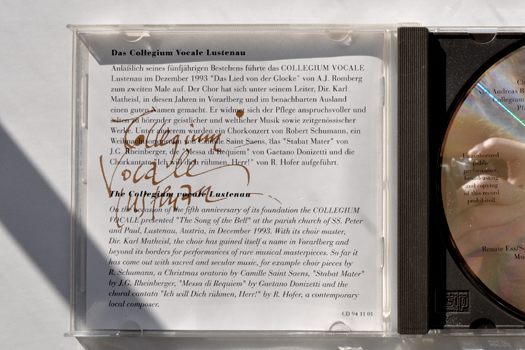 Das Collegium Vocale Lustenau
Anläßlich seines fünfjährigen Bestehens führte das COLLEGIUM VOCALE
Lustenau im Dezember 1993 "Das Lied von der Glocke" von A.J. Romberg
zum zweiten Male auf. Der Chor hat sich unter seinem Leiter, Dir. Karl
Matheisl, in diesen Jahren in Vorarlberg und im benachbarten Ausland
einen guten Namen gemacht. Er widmet sich der Pflege anspruchsvoller und
selten zu hörender geistlicher und weltlicher Musik sowie zeitgenössischer
Werke. Unter anderem wurden ein Chorkonzert von Robert Schumann, ein
von Camille Saint Saens, das "Stabat Mater" von
J.G. Rheinberger, die "Messa di Requiem" von Gaetano Donizetti und die
Chorkantate "Ich will dich rühmen, Herr!" von R. Hofer aufgeführt.
Collegium
Vocale
Lustenau
The Collegium vocale Lustenau
On the occasion of the fifth anniversary of its foundation the COLLEGIUM
VOCALE presented "The Song of the Bell" at the parish church of SS. Peter
and Paul, Lustenau, Austria, in December 1993. With its choir master,
Dir. Karl Matheisl, the choir has gained itself a name in Vorarlberg and
beyond its borders for performances of rare musical masterpieces. So far it
has come out with sacred and secular music, for example choir pieces by
R. Schumann, a Christmas oratorio by Camille Saint Saens, "Stabat Mater"
by J.G. Rheinberger, "Messa di Requiem" by Gaetano Donizetti and the
choral cantata "Ich will Dich rühmen, Herr!" by R. Hofer, a contemporary
local composer.
CD 94 11 01
Andreas
Collegium
Unauthorized
public
performance,
broadcasting
and copying
of this record
prohibited
Renate